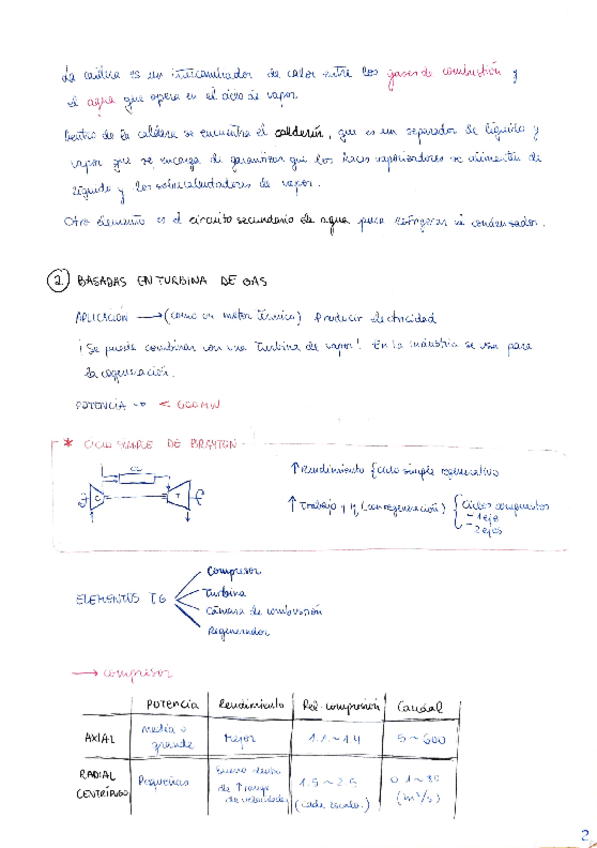 La caldera es un intercambiador de calor entre los gases de combustión y
el agua que opera en el ciclo de vapor.
Dentro de la caldera se encuentra el calderín, que es un separador de líquido y
vapor que se encarga de garantizar que los haces vaporizadores se alimentan de
líquido y los sobrecalentadores de vapor.
Otro elemento es el circuito secundario de agua para refrigerar el condensador.
2. BASADAS EN TURBINA DE GAS
APLICACIÓN → (como en motor térmico) Producir electricidad
¡Se puede combinar con una turbina de vapor! En la industria se usa para
la cogeneración.
POTENCIA → < 600 MW
* CICLO SIMPLE DE BRAYTON
CC
C T
↑ Rendimiento { ciclo simple regenerativo
↑ Trabajo y η (con regeneración) { Ciclos compuestos
- 1 eje
- 2 ejes
ELEMENTOS TG
Compresor
Turbina
Cámara de combustión
Regenerador
→ compresor
Potencia Rendimiento Rel. compresión Caudal
AXIAL media o grande Mejor 1.1 ~ 1.4 5 ~ 600
RADIAL CENTRÍFUGO Pequeñas Bueno dentro de ↑ rango de velocidades 1.5 ~ 2.5 (cada escalo.) 0.1 ~ 80 (m³/s)
2